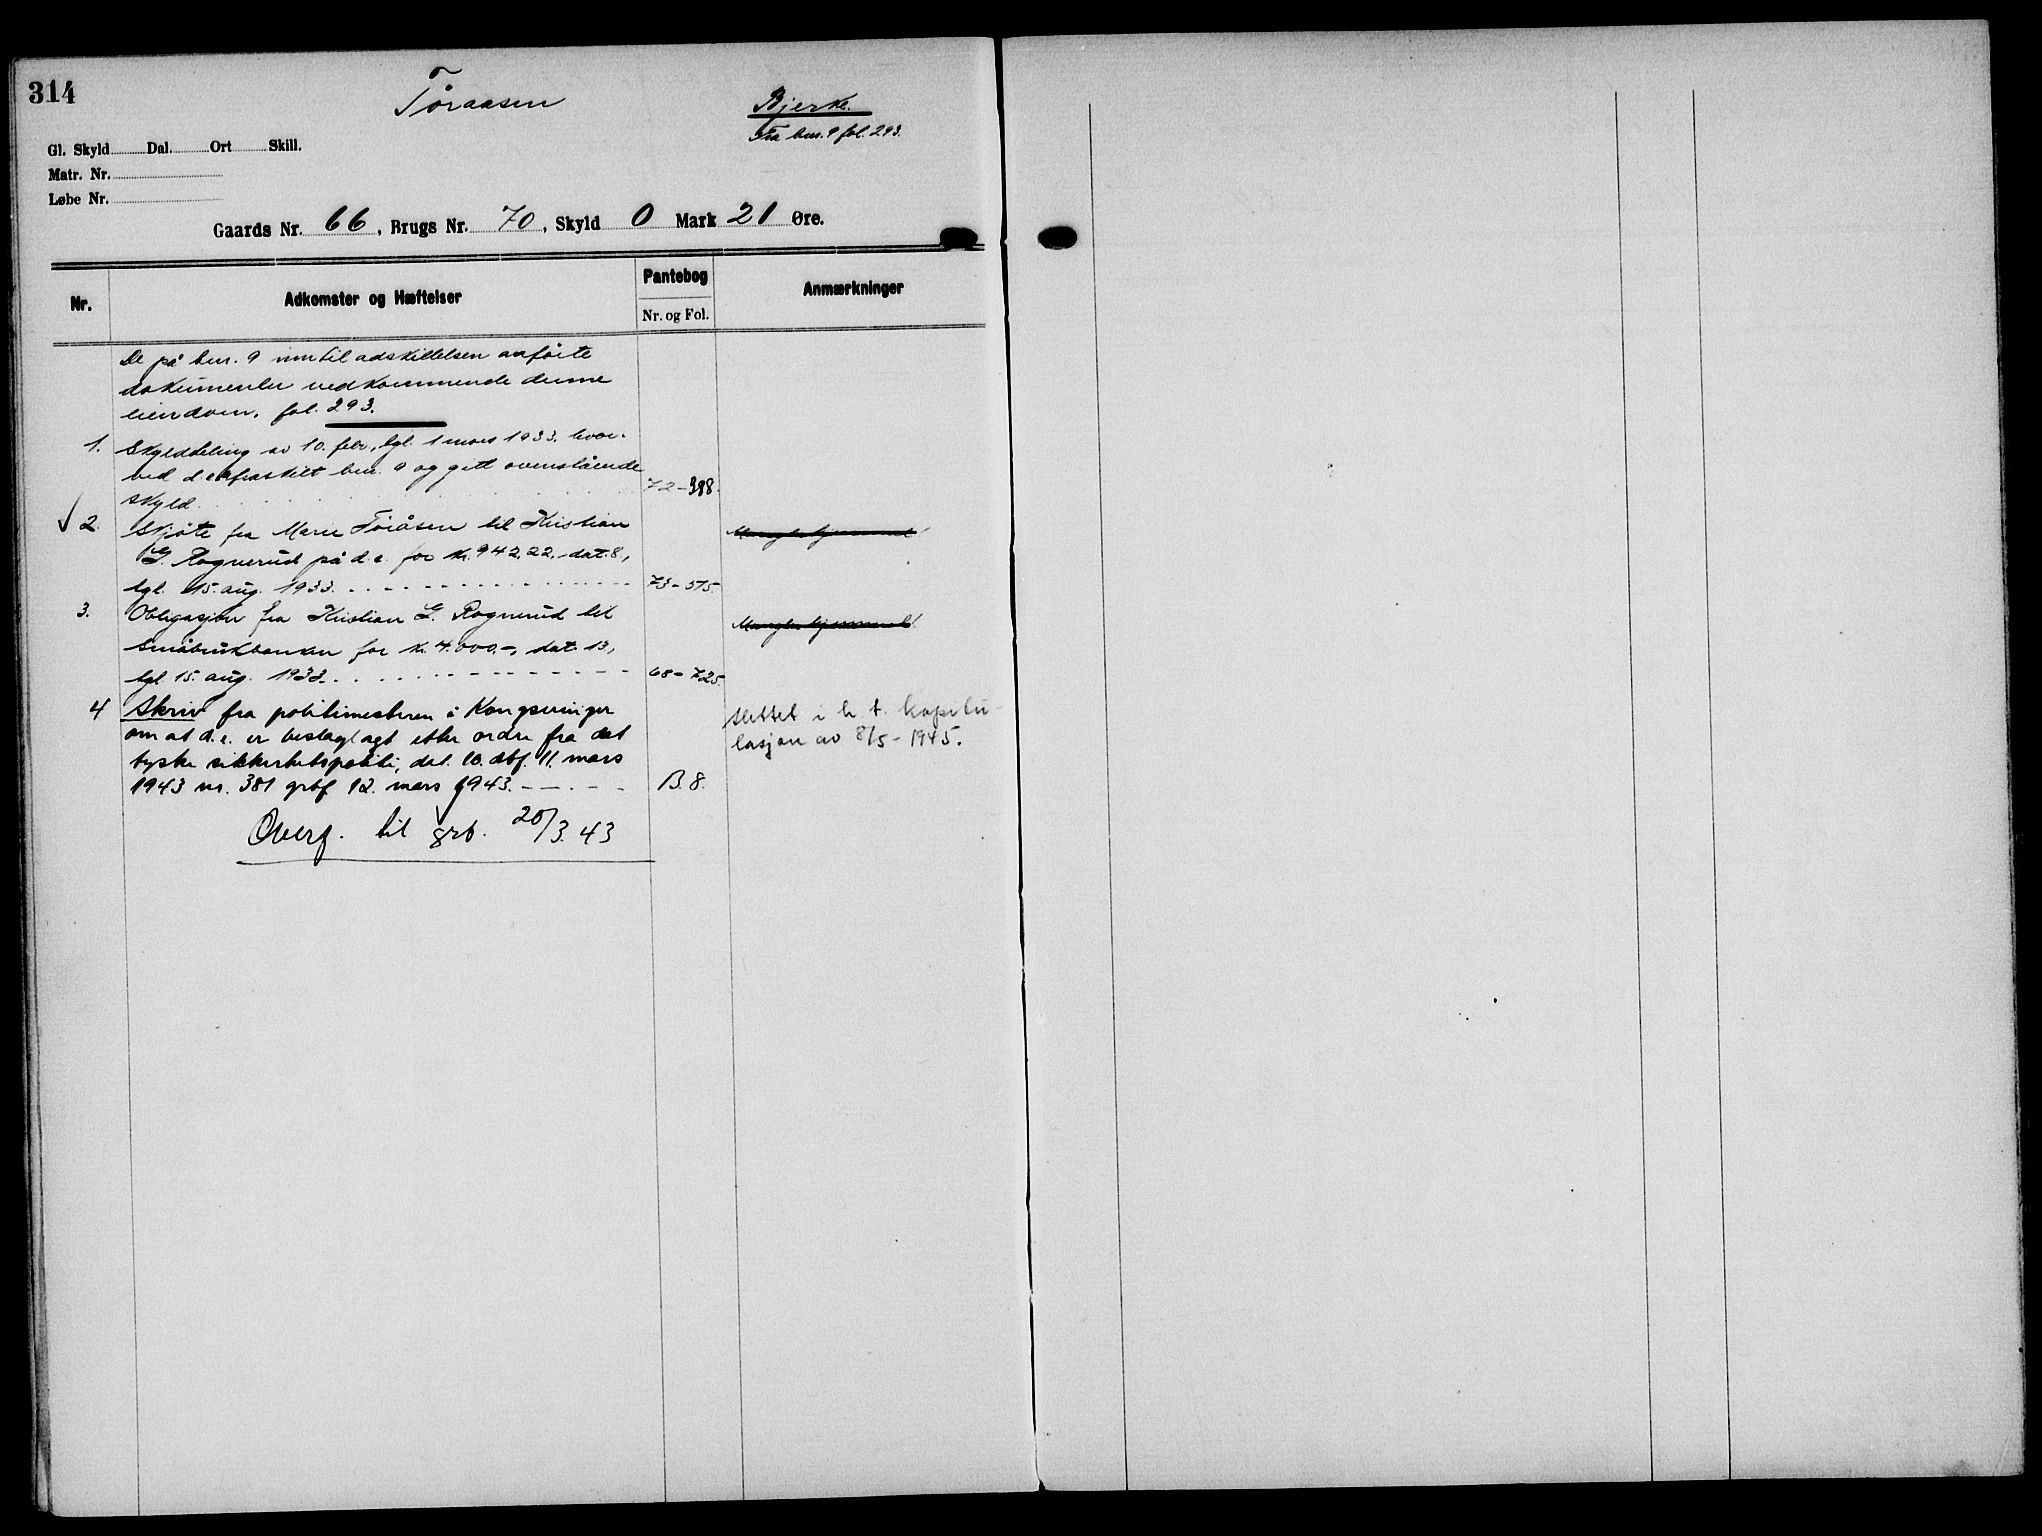 314
Töraasen
Bjerke.
Fra bnr. 9 fol. 293.
Gl. Skyld Dal. Ort Skill.
Matr. Nr.
Løbe Nr.
Gaards Nr. 66, Brugs Nr. 70, Skyld 0 Mark 21 Øre.
Nr. Adkomster og Hæftelser Pantebog Anmærkninger
Nr. og Fol.
De på bnr. 9 inntil adskillelsen anførte
dokumenter vedkommende denne
eiendom, fol. 293.
1. Skylddeling av 10. febr., tgl. 1 mars 1933, hvor-
ved d.e. fraskilt bnr. 9 og gitt ovenstående
skyld. 72-398.
2. Skjöte fra Marie Töråsen til Kristian
G. Rognerud på d.e. for kr. 942,22.- dat. 8.,
tgl. 15. aug. 1933. 73-515.
Mangler hjemmel!
3. Obligasjon fra Kristian G. Rognerud til
Småbrukbanken for kr. 4.000.-, dat. 13,
tgl. 15. aug. 1933. 68-725.
Mangler hjemmel!
4 Skriv fra politimesteren i Kongsvinger
om at d.e. er beslaglagt etter ordre fra det
tyske sikkerhetspoliti, dat. 10. dbf. 11. mars
1943 nr. 381 grbf 12. mars 1943. B. 8.
slettet i h. t. kapitu-
lasjon av 8/5-1945.
Overf. til grb. 20/3.43